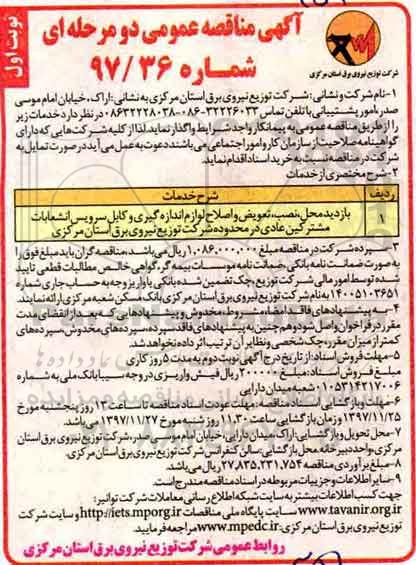 نوبت اول
آگهی مناقصه عمومی دو مرحله ای
شماره ۹۷/۳۶
شرکت توزیع نیروی برق استان مرکزی
۱-نام شرکت و نشانی: شرکت توزیع نیروی برق استان مرکزی به نشانی: اراک، خیابان امام موسی
صدر، امور پشتیبانی با تلفن تماس ۳۲۲۲۶۰۳۳-۰۸۶-۰۸۶۳۲۲۲۸۰۳۸ در نظر دارد خدمات زیر
را از طریق مناقصه عمومی به پیمانکار واجد شرایط واگذار نماید. لذا از کلیه شرکت هایی که دارای
گواهینامه صلاحیت از سازمان کار و امور اجتماعی می باشند دعوت به عمل می آید در صورت تمایل به
شرکت در مناقصه نسبت به خرید اسناد اقدام نماید.
۲-شرح مختصری از خدمات
ردیف شرح خدمات
۱ بازدید محل، نصب، تعویض و اصلاح لوازم اندازه گیری و کابل سرویس انشعابات
مشترکین عادی در محدوده شرکت توزیع نیروی برق استان مرکزی
۳-سپرده شرکت در مناقصه مبلغ ۱،۰۸۶،۰۰۰،۰۰۰ ریال می باشد، مناقصه گران باید مبلغ فوق را
به صورت ضمانت نامه بانکی، ضمانت نامه موسسات بیمه گر، گواهی خالص مطالبات قطعی تایید
شده توسط امور مالی شرکت توزیع، چک تضمین شده بانکی یا واریز وجه به حساب جاری شماره
۱۴۰۰۵۱۰۳۶۵۱ به نام شرکت توزیع نیروی برق استان مرکزی بانک مسکن شعبه مرکزی ارائه نمایند.
۴-به پیشنهادهای فاقد امضاء، مشروط، مخدوش و پیشنهادهایی که بعد از انقضای مدت
مقرر در فراخوان واصل شود و همچنین به پیشنهادهای فاقد سپرده، سپرده های مخدوش، سپرده های
کمتر از میزان مقرر، چک شخصی و نظایر آن ترتیب اثر داده نخواهد شد.
۵-مهلت فروش اسناد: از تاریخ درج آگهی نوبت دوم به مدت ۵ روز کاری
مبلغ فروش اسناد: مبلغ ۲۰۰۰۰۰ ریال فیش واریزی در وجه سیبا بانک ملی به شماره
۰۱۰۵۳۱۴۲۱۷۰۰۶ شعبه میدان دارایی
۶-مهلت و بازگشایی اسناد مناقصه: مهلت عودت اسناد مناقصه تا ساعت ۱۳ روز پنجشنبه مورخ
۱۳۹۷/۱۱/۲۵ و زمان بازگشایی ساعت ۱۱،۳۰ روز شنبه مورخ ۱۳۹۷/۱۱/۲۷ می باشد.
۷-محل تحویل و بازگشایی: اراک، میدان دارایی، خیابان امام موسی صدر، شرکت توزیع نیروی برق استان
مرکزی، واحد دبیرخانه محل بازگشایی: سالن کنفرانس شرکت توزیع نیروی برق استان مرکزی
۸-مبلغ برآوردی مناقصه ۲۷،۸۳۵،۲۳۱،۷۵۴ ریال می باشد.
۹-سایر اطلاعات و جزییات مربوطه در اسناد مناقصه مندرج است.
جهت کسب اطلاعات بیشتر به سایت شبکه اطلاع رسانی معاملات شرکت توانیر:
www.tavanir.org.ir سایت پایگاه ملی مناقصات http://iets.mporg.ir و سایت شرکت
توزیع نیروی برق استان مرکزی: www.mpedc.ir مراجعه فرمایید.
روابط عمومی شرکت توزیع نیروی برق استان مرکزی